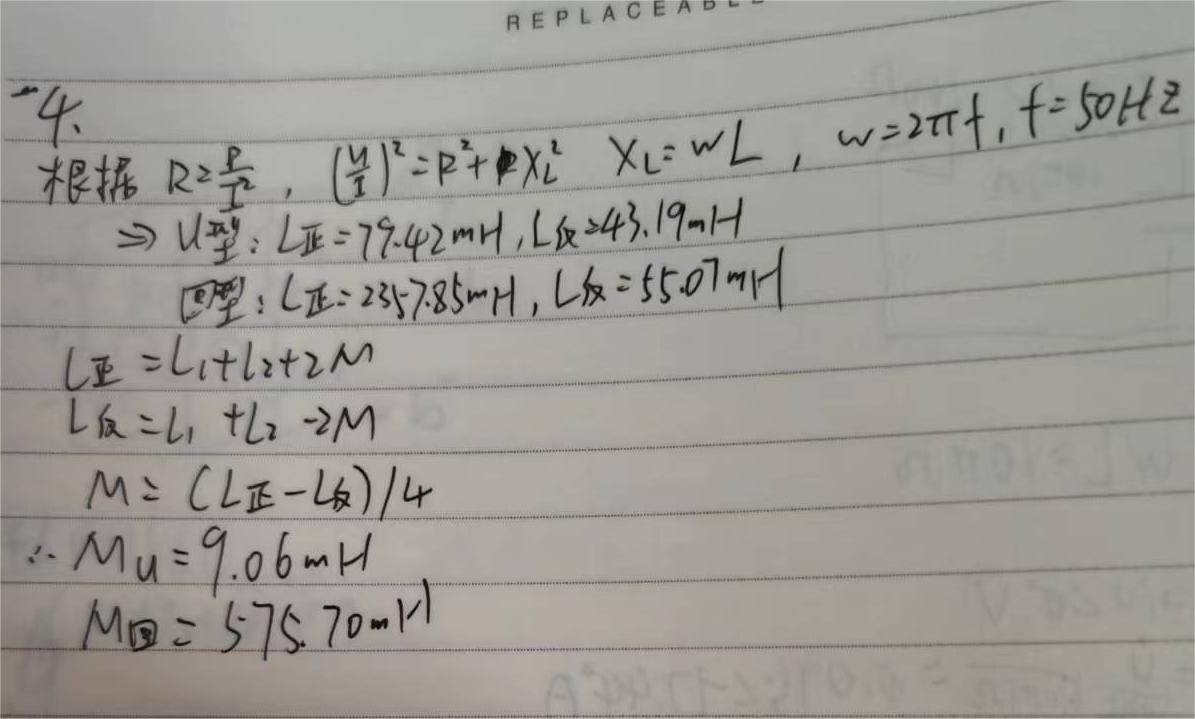 REPLACEABLE
4、
根据 R=P/I², (U/I)²=R²+XL² XL=wL, w=2πf, f=50HZ
⇒ U型: L正=79.42mH, L反=43.19mH
回型: L正=2357.85mH, L反=55.07mH
L正=L1+L2+2M
L反=L1+L2-2M
M=(L正-L反)/4
∴ MU=9.06mH
M回=575.70mH